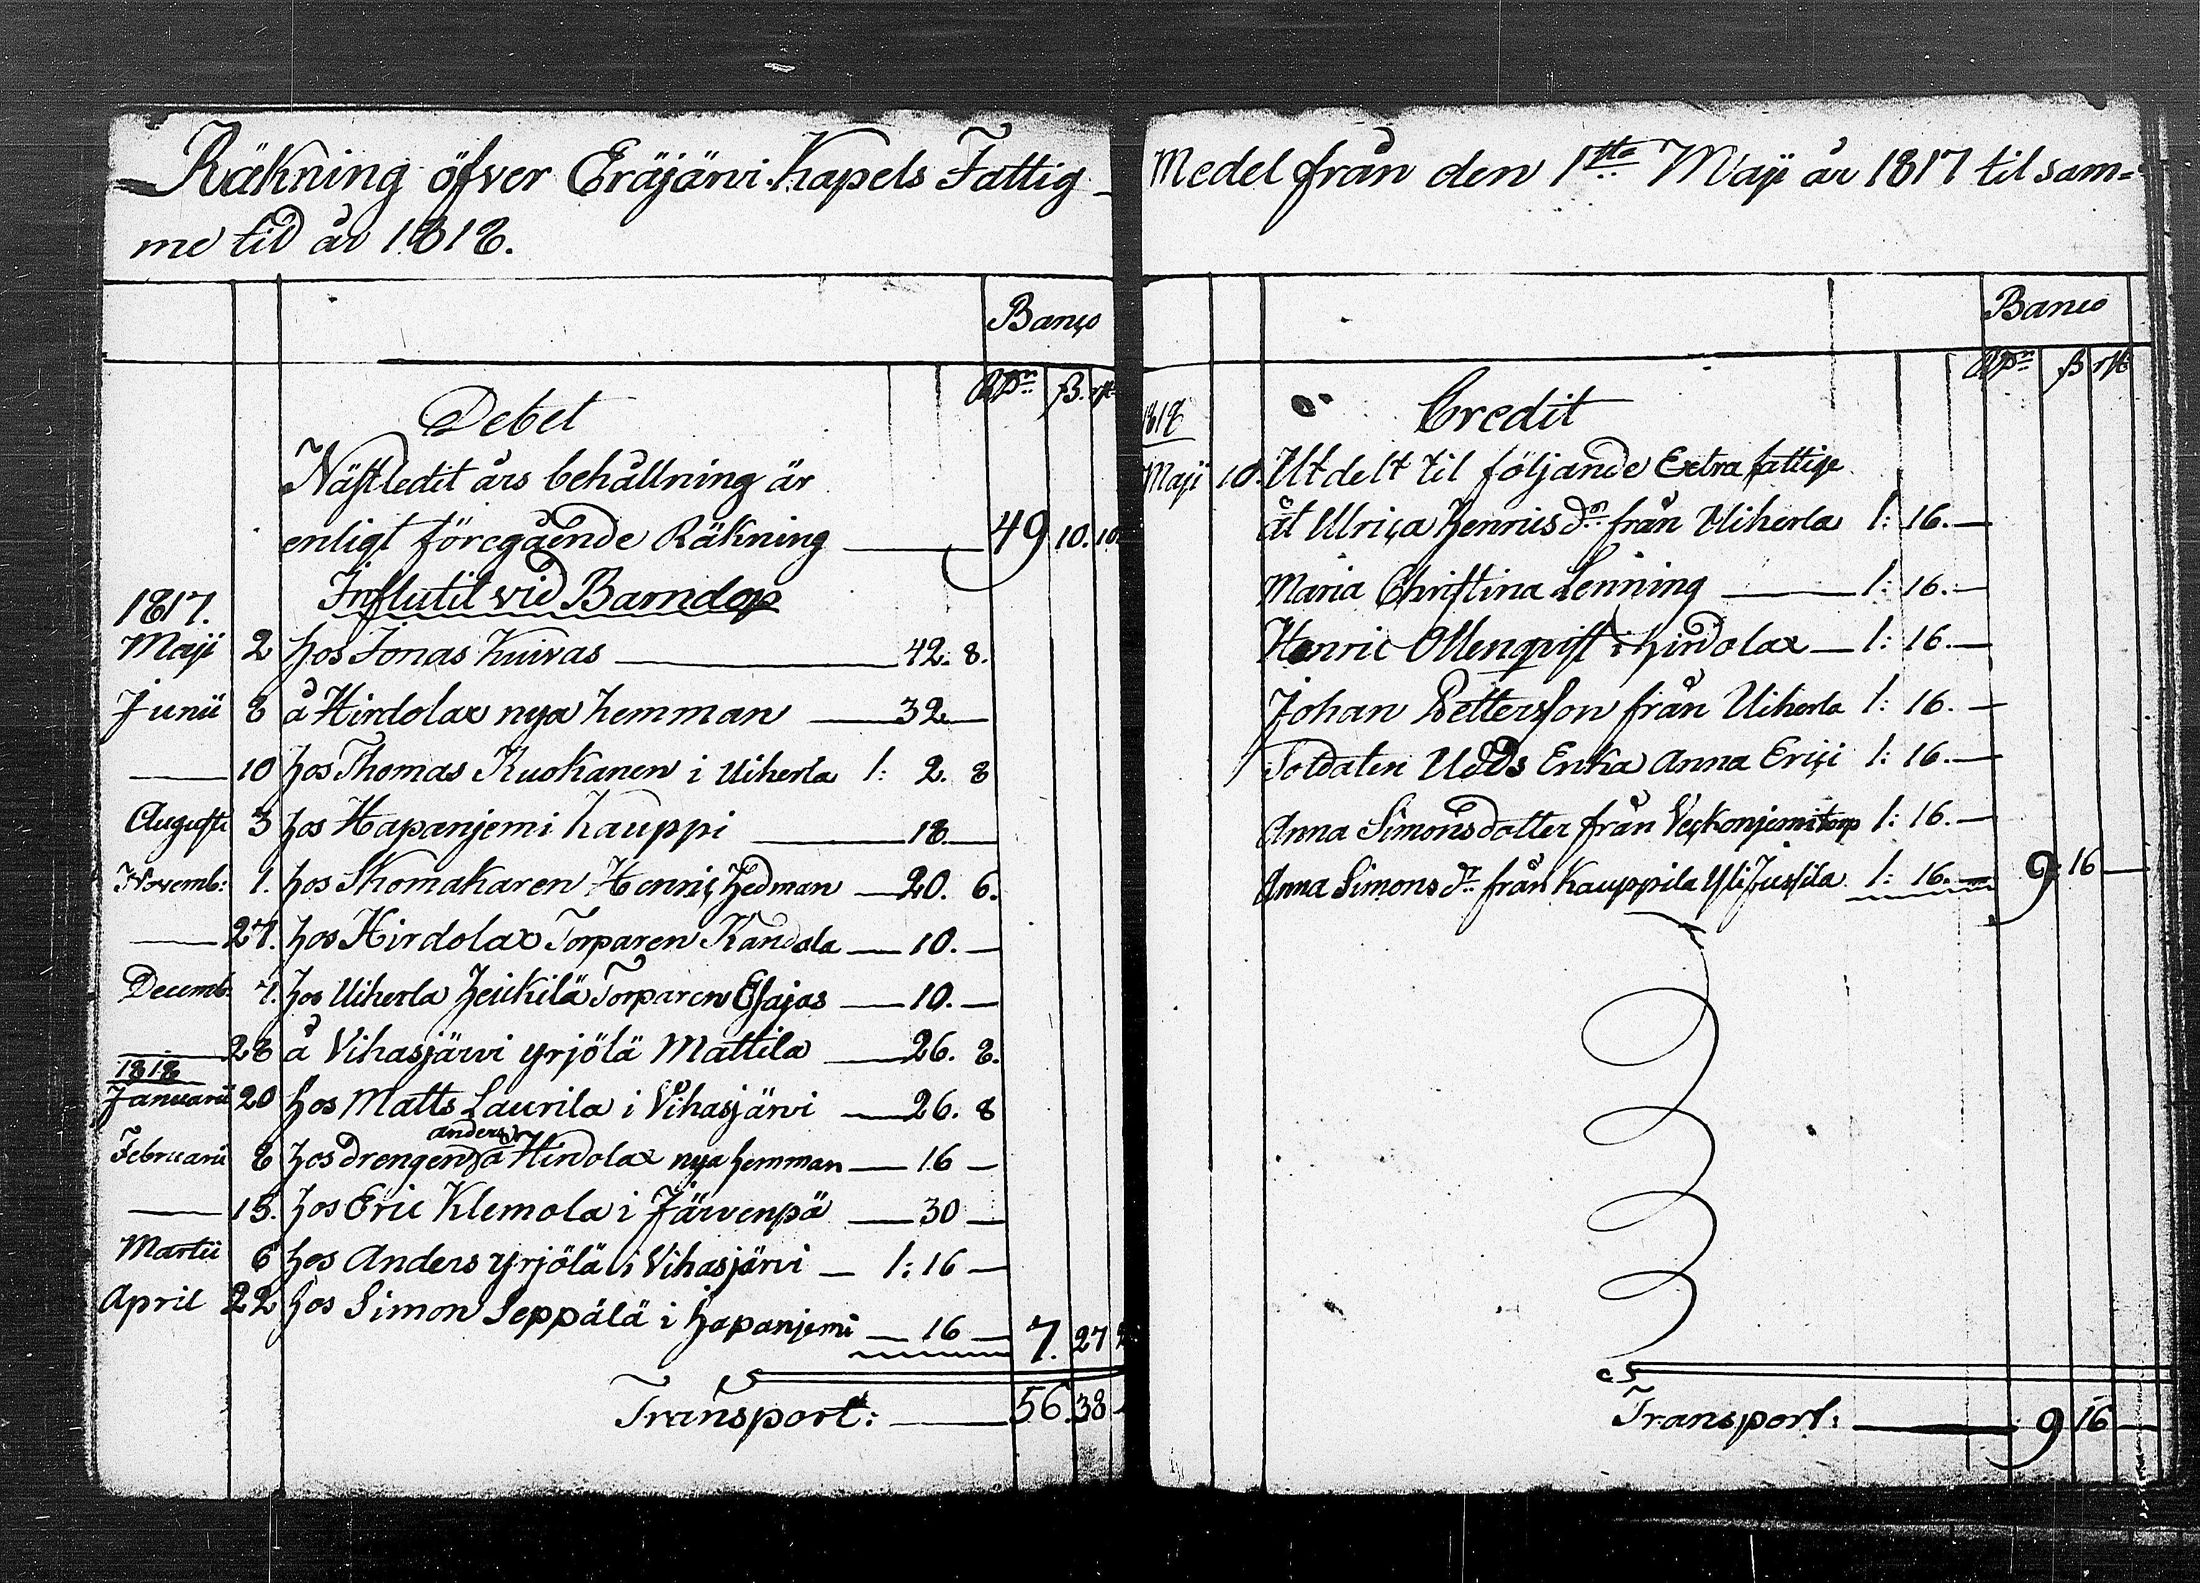 Räkning öfver Eräjärvi Kapels Fattig
me tid år 1818.
Banco
Rdr ß. rst
Debet
Nästledit års behållning är
enligt föregående Räkning 49 10. 10.
Influtit vid Barndop
1817.
Maji 2 hos Jonas Kuivas 42. 8.
Junii 8 å Hirdolax nya hemman 32 —
— 10 hos Thomas Kuokanen i Uiherla 1: 2. 8
Augusti 3 hos Hapanjemi Kauppi 18 —
Novemb: 1. hos Skomakaren Henric Hedman 20. 6.
— 27. hos Hirdolax Torparen Kandola 10. —
Decemb. 7. hos Uiherla Heikilä Torparen Esajas 10. —
— 28 å Vihasjärvi Yrjölä Mattila 26. 8.
1818
Januarii 20 hos Matts Laurila i Vihasjärvi 26. 8
anders
Februarii 8 hos drengen å Hirdolax nya hemman 16 —
— 15. hos Eric Klemola i Järvenpä 30 —
Martii 6 hos Anders Yrjölä i Vihasjärvi 1: 16 —
April 22 hos Simon Seppälä i Hapanjemi 16 — 7. 27
Transport: 56. 38
Medel från den 1sta Maji år 1817 til sam=
Banco
Rdr ß rst
1818
Credit
Maji 10. Utdelt til följande Extra fattige
åt Ulrica Henricsdr från Uiherla 1: 16. —
Maria Christina Lenning 1: 16. —
Henric Ollenqvist i Hirdolax 1: 16. —
Johan Pettersson från Uiherla 1: 16. —
Soldaten Udds Enka Anna Erici 1: 16. —
Anna Simonsdotter från Veckonjemi torp 1: 16. —
Anna Simonsdr från Kauppila Yli Jussila 1: 16. — 9 16 —
Transport: 9 16 —